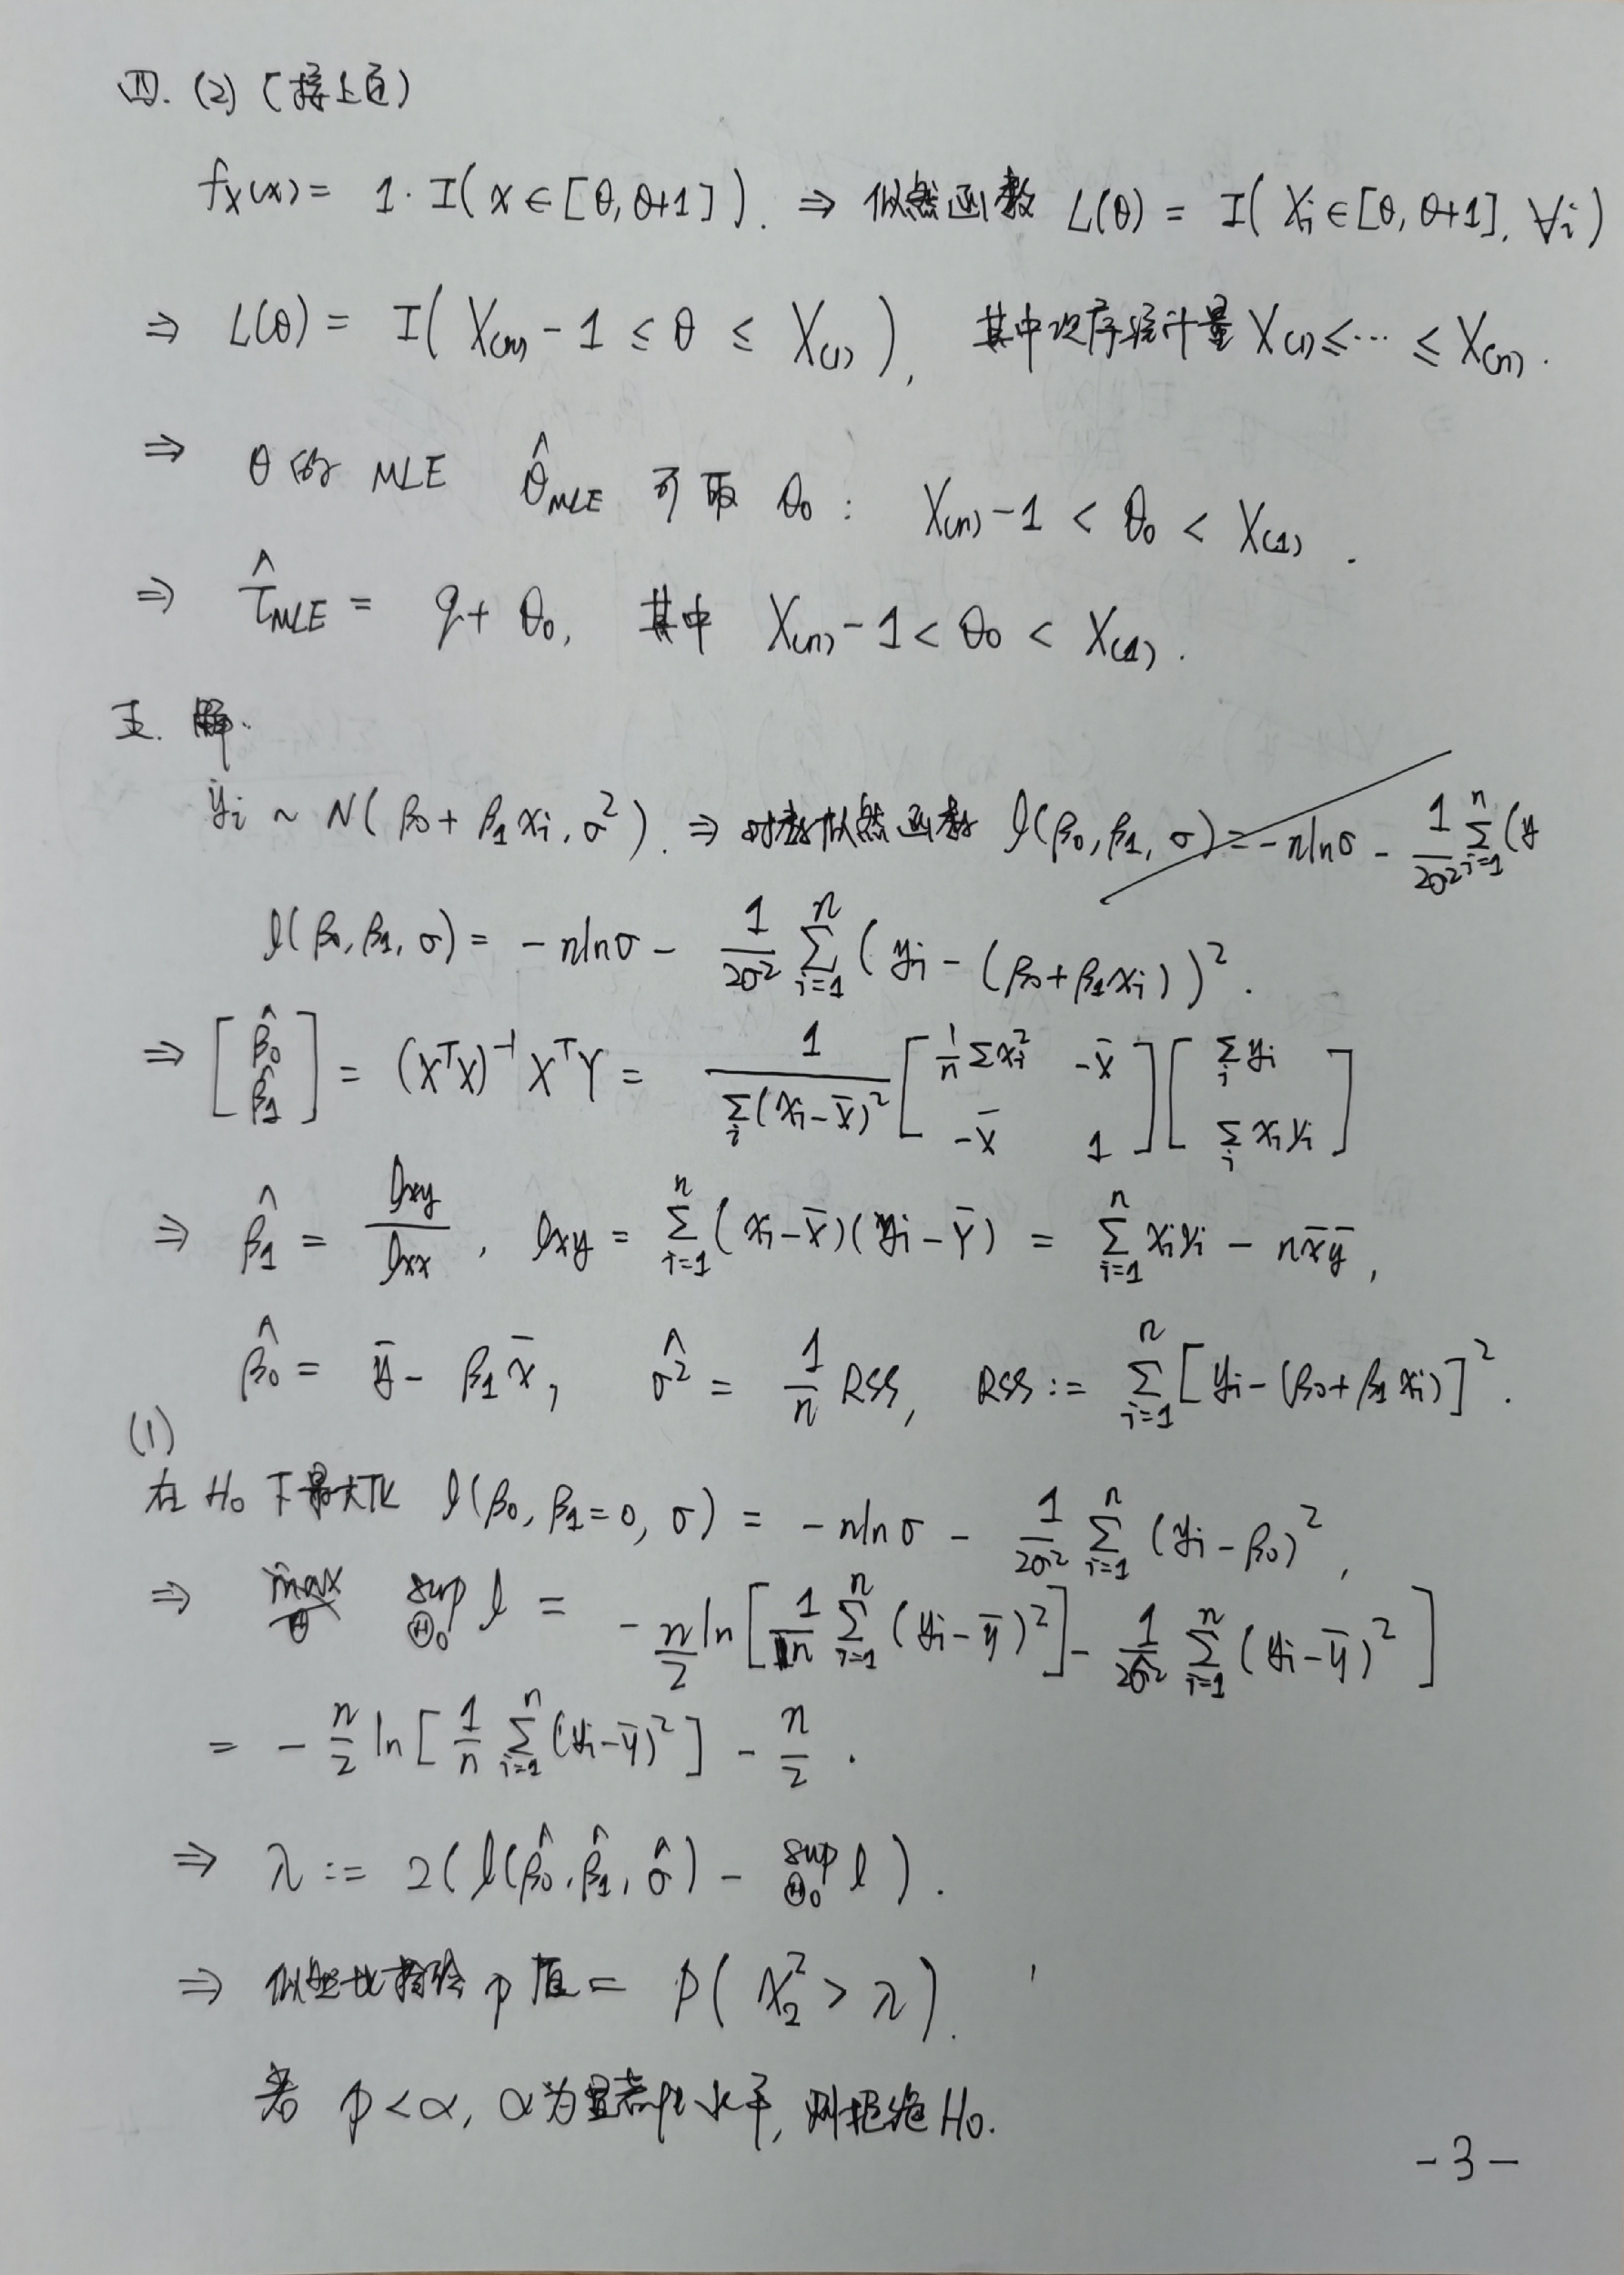 四. (2) (接上页)
f_X(x) = 1·I(x∈[θ, θ+1]). ⇒ 似然函数 L(θ) = I(X_i∈[θ, θ+1], ∀i)
⇒ L(θ) = I(X_(n) - 1 ≤ θ ≤ X_(1)), 其中次序统计量 X_(1) ≤ ⋯ ≤ X_(n).
⇒ θ的 MLE θ̂_MLE 可取 θ_0 : X_(n) - 1 < θ_0 < X_(1).
⇒ τ̂_MLE = q + θ_0, 其中 X_(n) - 1 < θ_0 < X_(1).
五. 解.
y_i ~ N(β_0 + β_1 x_i, σ²). ⇒ 对数似然函数 l(β_0, β_1, σ) = -n ln σ - 1/(2σ²) Σ_{i=1}^n (y
l(β_0, β_1, σ) = -n ln σ - 1/(2σ²) Σ_{i=1}^n (y_i - (β_0 + β_1 x_i))².
⇒ [β̂_0; β̂_1] = (X^T X)^{-1} X^T Y = 1/(Σ_i (x_i - x̄)²) [1/n Σx_i², -x̄; -x̄, 1] [Σ_i y_i; Σ_i x_i y_i]
⇒ β̂_1 = l_xy / l_xx, l_xy = Σ_{i=1}^n (x_i - x̄)(y_i - ȳ) = Σ_{i=1}^n x_i y_i - n x̄ ȳ,
β̂_0 = ȳ - β_1 x̄, σ̂² = 1/n RSS, RSS := Σ_{i=1}^n [y_i - (β_0 + β_1 x_i)]².
(1)
在 H_0 下最大化 l(β_0, β_1=0, σ) = -n ln σ - 1/(2σ²) Σ_{i=1}^n (y_i - β_0)²,
⇒ max_Θ sup_{Θ_0} l = -n/2 ln[1/n Σ_{i=1}^n (y_i - ȳ)²] - 1/(2σ̂²) Σ_{i=1}^n (y_i - ȳ)²]
= -n/2 ln[1/n Σ_{i=1}^n (y_i - ȳ)²] - n/2.
⇒ λ := 2(l(β̂_0, β̂_1, σ̂) - sup_{Θ_0} l).
⇒ 似然比检验 p 值 = P(χ²_2 > λ).
若 p < α, α为显著性水平, 则拒绝 H_0.
-3-